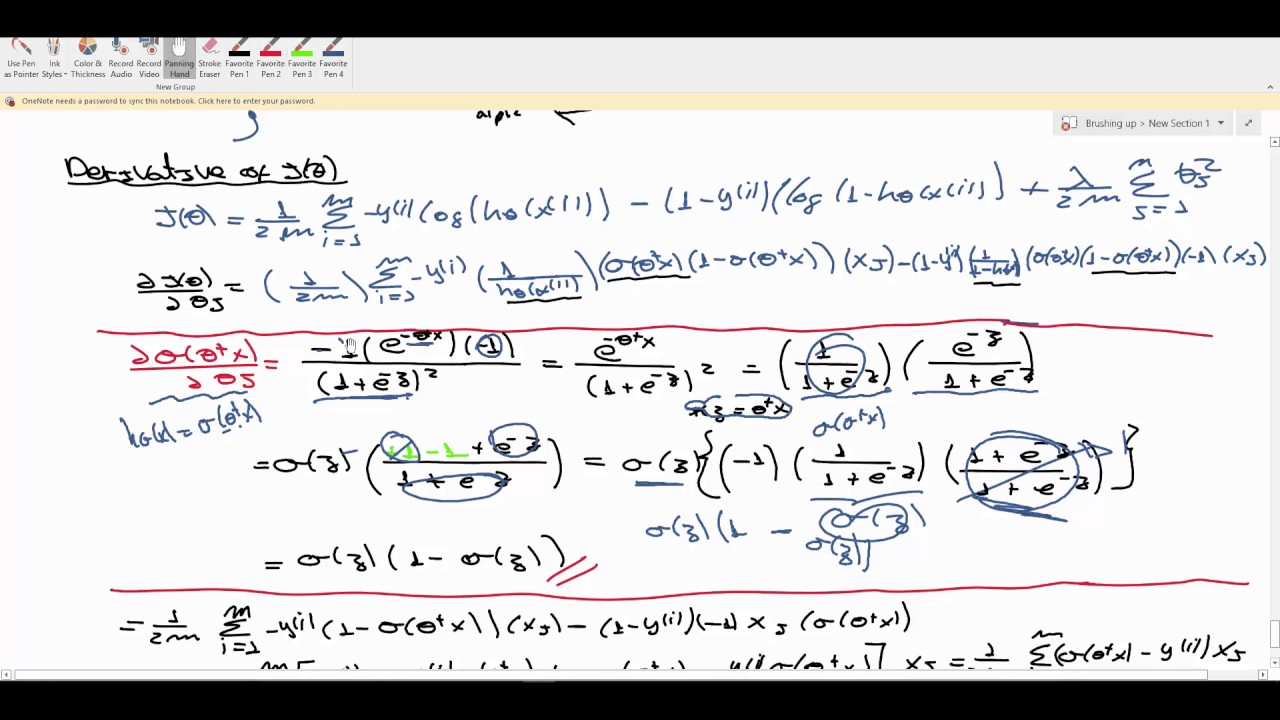 Use Pen as Pointer
Ink Styles
Color & Thickness
Record Audio
Record Video
Panning Hand
Stroke Eraser
Favorite Pen 1
Favorite Pen 2
Favorite Pen 3
Favorite Pen 4
New Group
OneNote needs a password to sync this notebook. Click here to enter your password.
Brushing up > New Section 1
Derivative of J(θ)
J(θ) = 1/2m Σ_{i=1}^{m} -y(i) log(hθ(x(i)) - (1-y(i))(log(1-hθ(x(i)) + λ/2m Σ_{j=1}^{m} θj²
∂J(θ)/∂θj = (1/2m) Σ_{i=1}^{m} -y(i) (1/hθ(x(i))) (σ(θᵗx)(1-σ(θᵗx)) (xj) - (1-y(i)) (1/1-hθ) (σ(θᵗx)(1-σ(θᵗx)) (-1) (xj)
∂σ(θᵗx)/∂θj = -1(e^{-θᵗx})(-1)/(1+e^{-z})² = e^{-θᵗx}/(1+e^{-z})² = (1/1+e^{-z}) (e^{-z}/1+e^{-z})
z = θᵗx
σ(θᵗx)
hθ(x) = σ(θᵗx)
= σ(z) (+1-1+e^{-z}/1+e^{-z}) = σ(z){(-1) (1/1+e^{-z}) (1+e^{-z}/1+e^{-z})}
σ(z)(1 - σ(z))
σ(z)
= σ(z)(1-σ(z))
= 1/2m Σ_{i=1}^{m} -y(i)(1-σ(θᵗx))(xj) - (1-y(i))(-1)xj(σ(θᵗx)
xj = 1/ Σ^{m} (σ(θᵗx) - y(i))xj